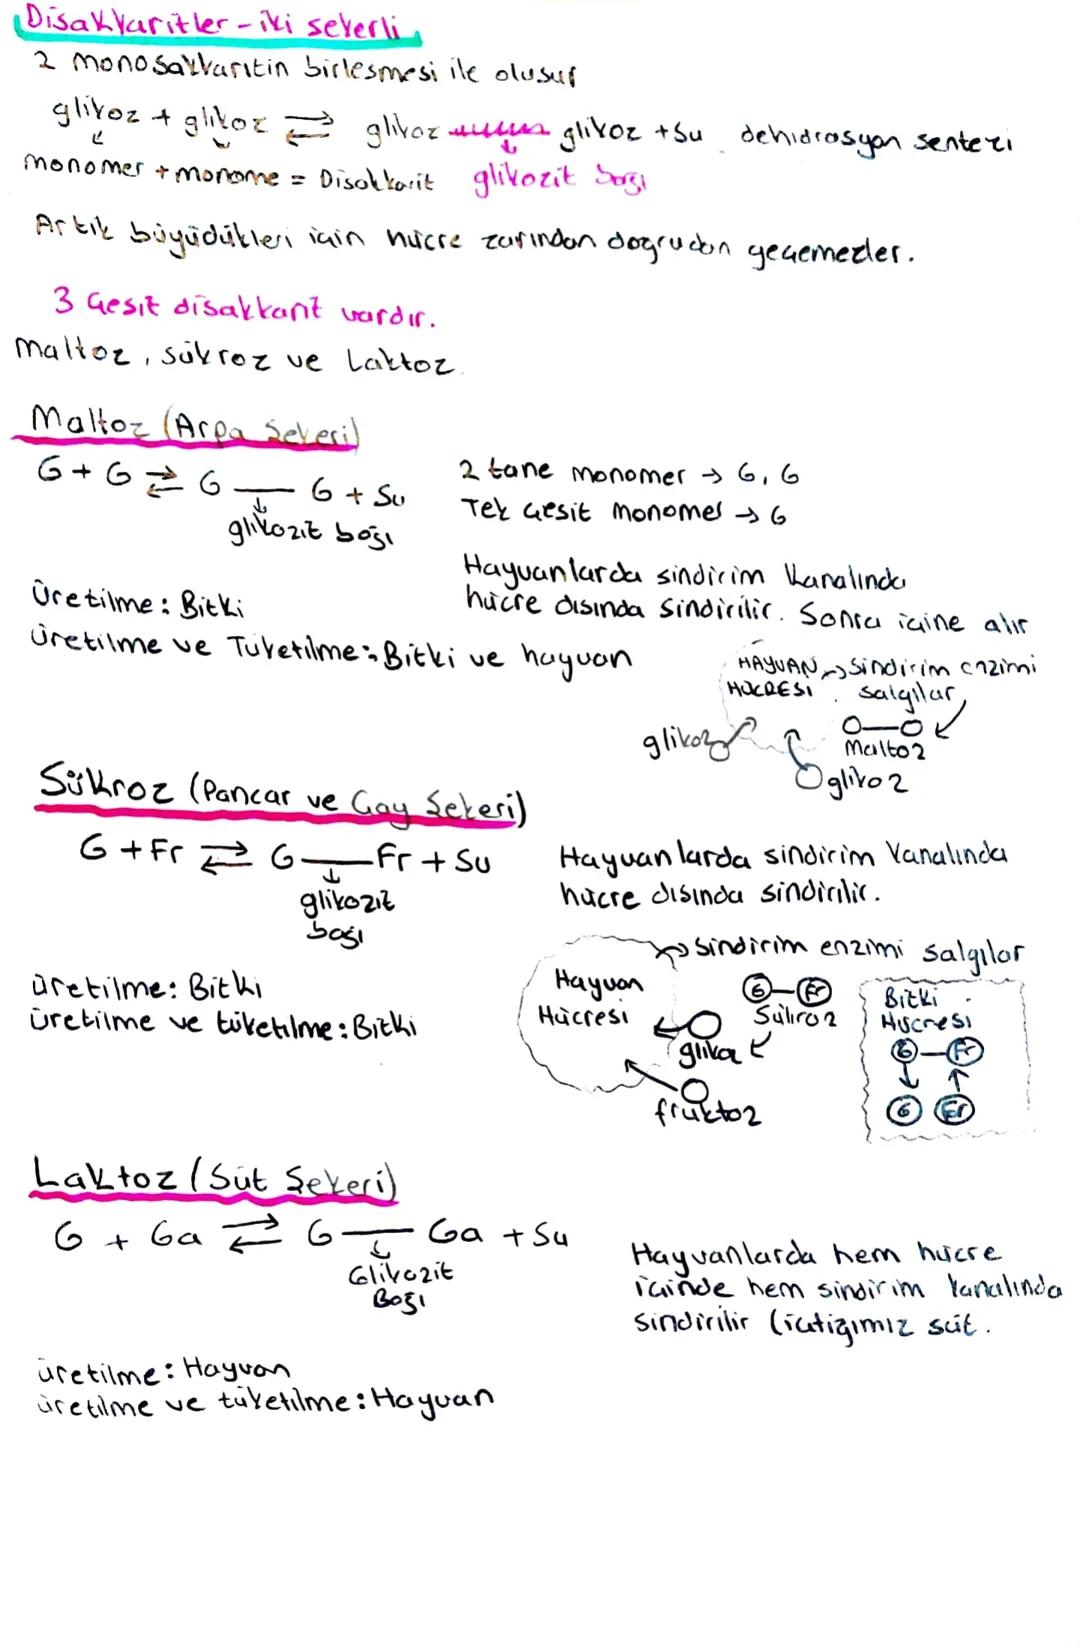 Disakkaritler - iki şekerli
2 monosakkaritin birleşmesi ile oluşur
glikoz + glikoz ⇌ glikoz glikoz + su dehidrasyon sentezi
monomer + monome = Disakkarit glikozit bağı
Artık büyüdükleri için hücre zarından doğrudan geçemezler.
3 Çeşit disakkarit vardır.
Maltoz, sükroz ve Laktoz.
Maltoz (Arpa Şekeri)
G + G ⇌ G — G + Su
glikozit bağı
2 tane monomer → G, G
Tek çeşit monomer → G
Hayvanlarda sindirim kanalında
hücre dışında sindirilir. Sonra içine alır
Üretilme: Bitki
Üretilme ve Tüketilme: Bitki ve hayvan
HAYVAN → Sindirim enzimi
HÜCRESİ salgılar
Maltoz
glikoz
glikoz
Sükroz (Pancar ve Çay Şekeri)
G + Fr ⇌ G — Fr + Su
glikozit
bağı
Hayvanlarda sindirim kanalında
hücre dışında sindirilir.
üretilme: Bitki
üretilme ve tüketilme: Bitki
→ Sindirim enzimi salgılar
Hayvan
Hücresi
G — Fr
Sükroz
glikoz
fruktoz
Bitki
Hücresi
G — Fr
G Fr
Laktoz (Süt Şekeri)
G + Ga ⇌ G — Ga + Su
Glikozit
Bağı
Hayvanlarda hem hücre
içinde hem sindirim kanalında
sindirilir (içtiğimiz süt.
üretilme: Hayvan
üretilme ve tüketilme: Hayvan